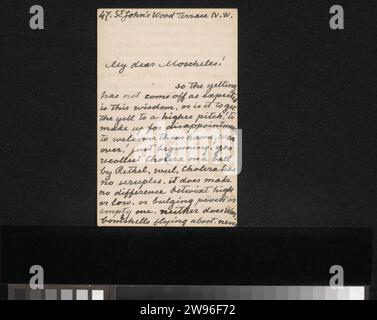 47. St John's Wood Terrace N.W.
My dear Moscheles!
so the yelling
has not come off as expected
is this wisdom, or is it to get
the yell to a higher pitch, to
make up for disappointment
to welcome them home? is
over, just beginning. you
recollect Cholera on a ball
by Rethel, well, Cholera has
no scruples. it does make
no difference betwixt high
or low. or bulging pockets or
empty one. neither does War,
bombshells flying about. never
alamy
Image ID: 2W96F72
www.alamy.com